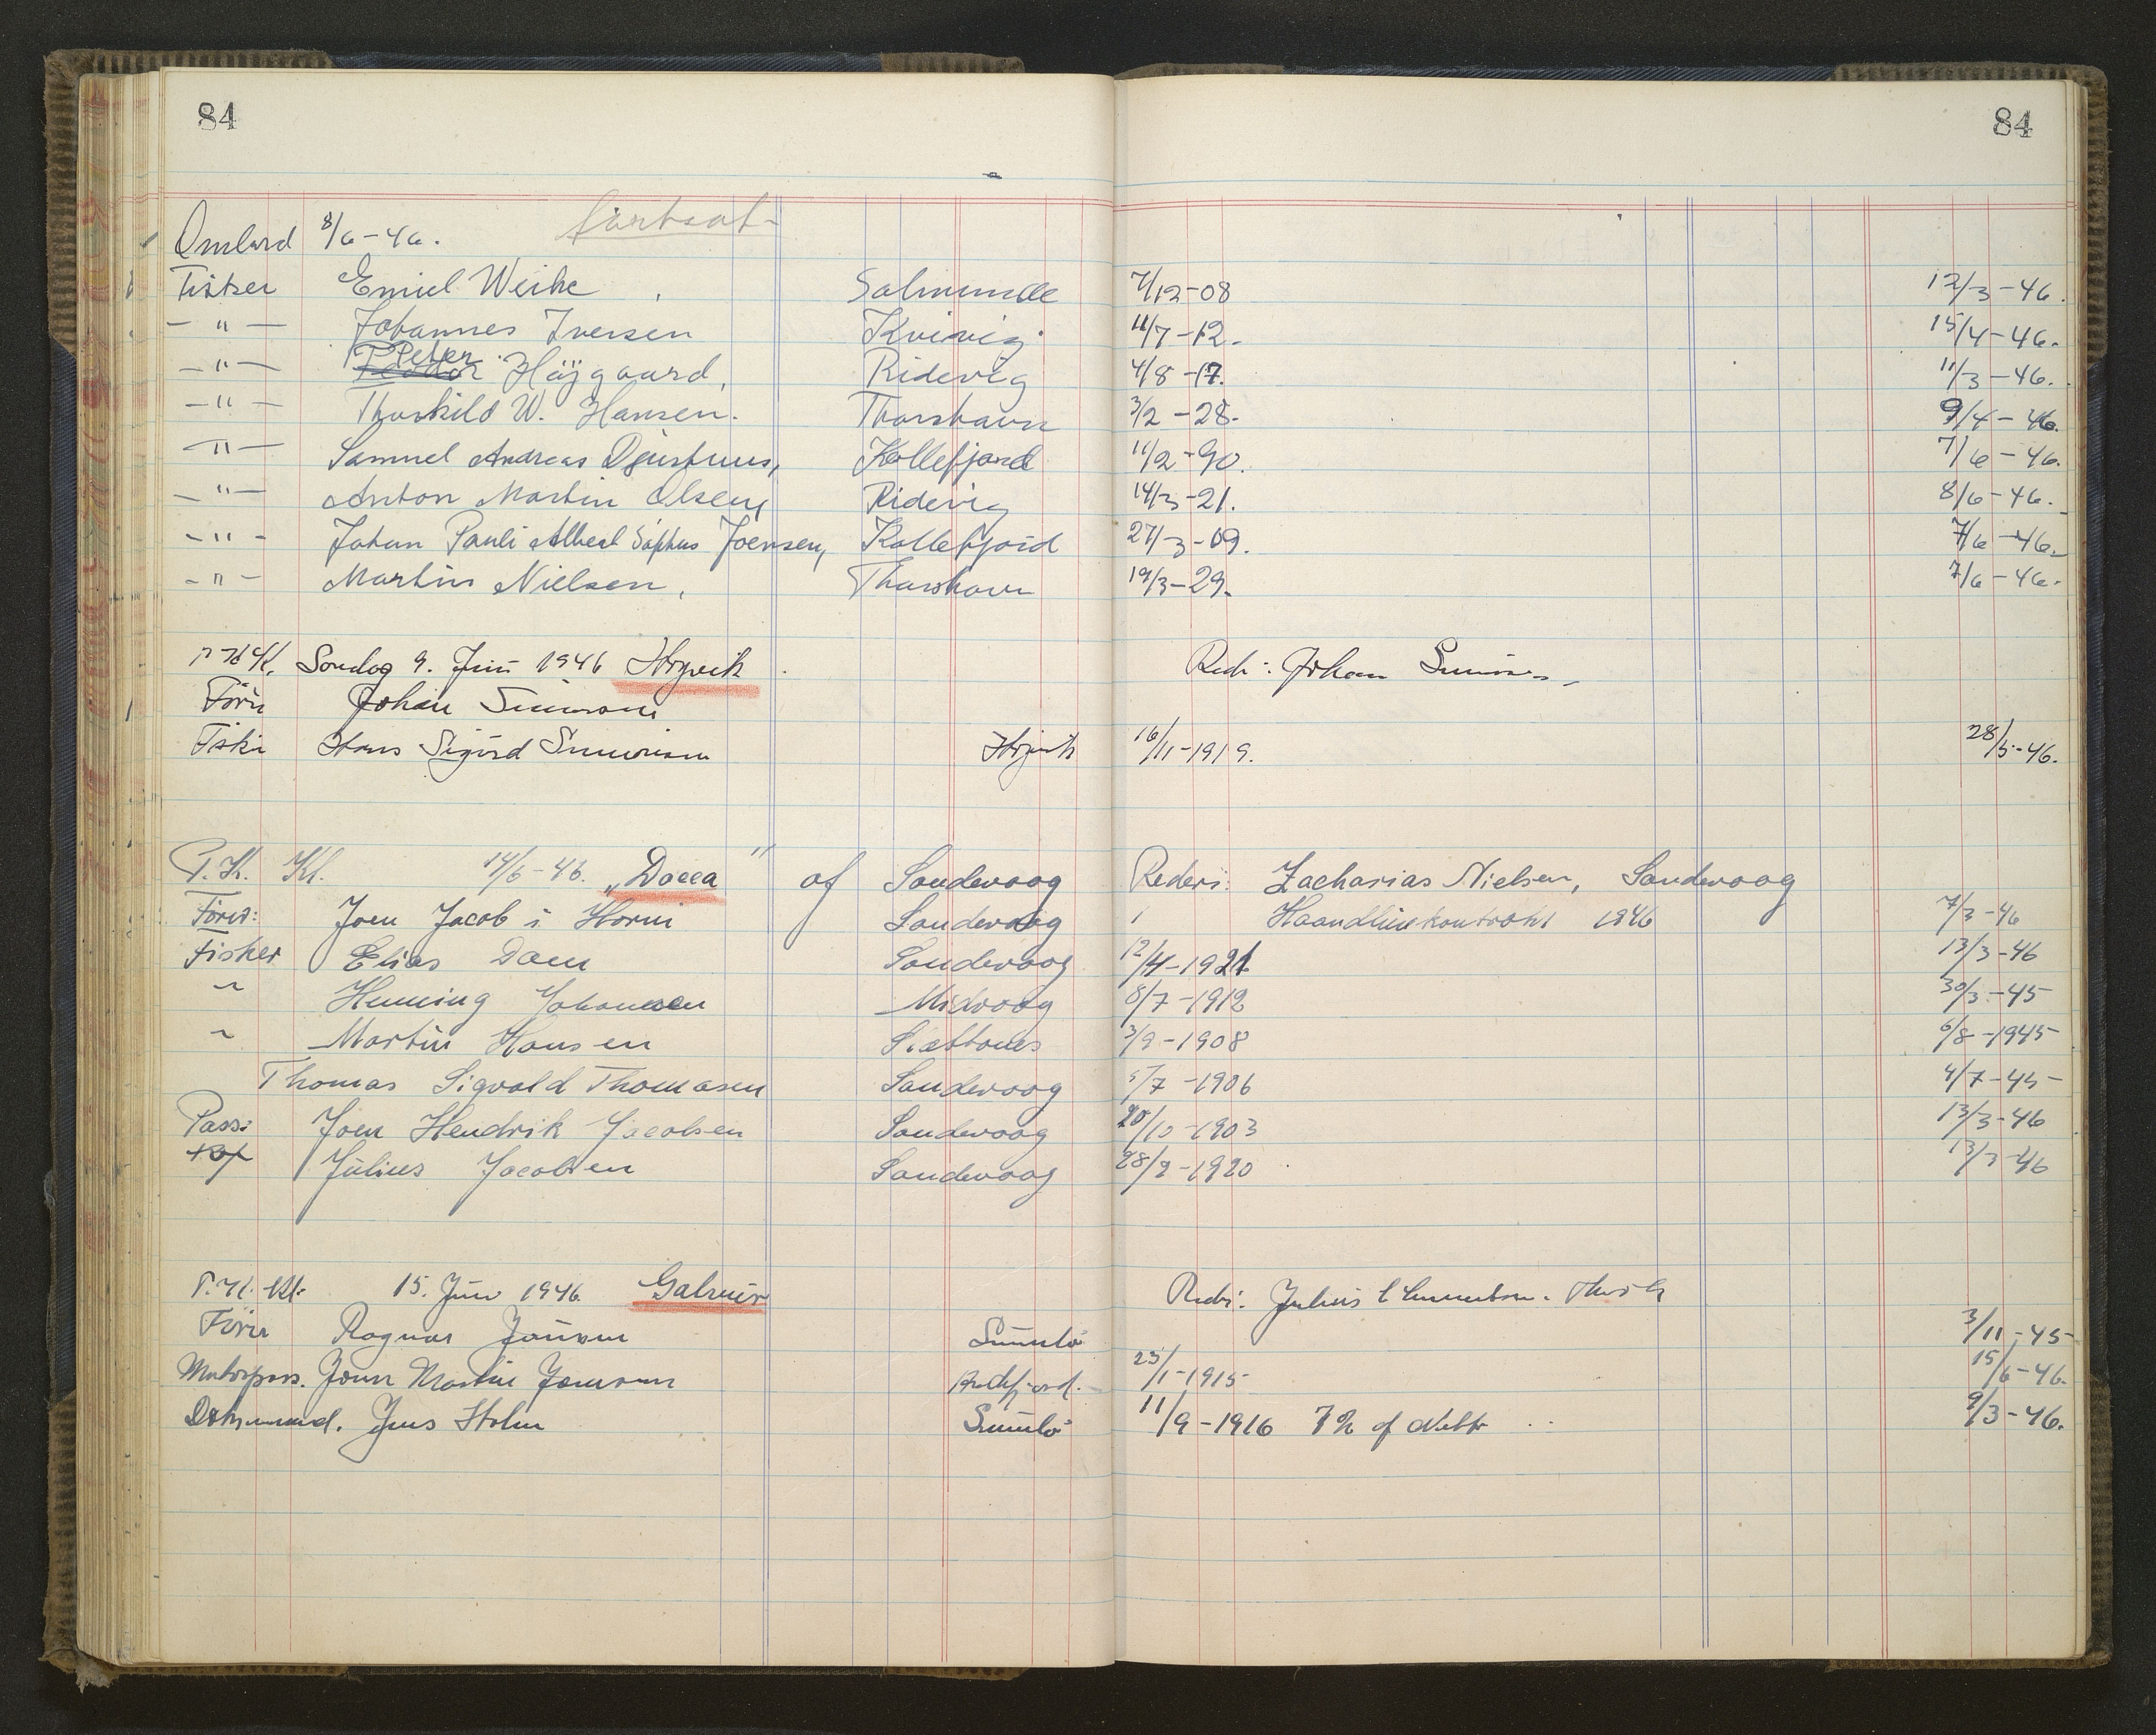 84 84
fortsat
Ombord 8/6-46.
Fisker Emiel Weihe Salnimelle 7/12-08 12/3-46.
-"- Johannes Iversen Kvivig 11/7-12. 15/4-46.
-"- Peter Höjgaard, Ridevig 4/8-17. 11/3-46.
-"- Thorkild W. Hansen. Thorshavn 3/2-28. 9/4-46.
-"- Samuel Andreas Djurhuus, Kollefjord 11/2-90. 7/6-46.
-"- Anton Martin Olsen, Ridevig 14/3-21. 8/6-46.
-"- Johan Pauli Albert Sophus Joensen, Kollefjord 27/3-09. 7/6-46.
-"- Martin Nielsen, Thorshavn 19/3-29. 7/6-46.
Søndag 9. Juni 1946 Hojvik Redr: Johan Simonsen
Förer Johan Simonsen
Fisker Hans Sigurd Simonsen Hojvik 16/11-1919. 28/5-46.
P.K. Kl. 14/6-46. „Docca" af Sandevaag Rederi: Zacharias Nielsen, Sandevaag
Förer: Joen Jacob i Horni Sandevaag Haandlinekontrakt 1946 7/3-46
Fisker Elias Dam Sandevaag 12/4-1921 13/3-46
" Henning Johannesen Midvaag 8/7-1912 30/3-45
" Martin Hansen Slættanes 3/9-1908 6/8-1945
Thomas Sigvald Thomasen Sandevaag 5/7-1906 4/7-45
Pass: Joen Hendrik Jacobsen Sandevaag 20/10-1903 13/3-46
Julius Jacobsen Sandevaag 28/9-1920 13/3-46
P.K. Kl. 15. Juni 1946 Redr: Julius
Förer Ragnar Joensen Sumbö 3/11-45
Motorpass. Joen Martin Joensen 23/1-1915 15/6-46.
Jens Holm Sumbö 11/9-1916 7% af Netto 9/3-46.